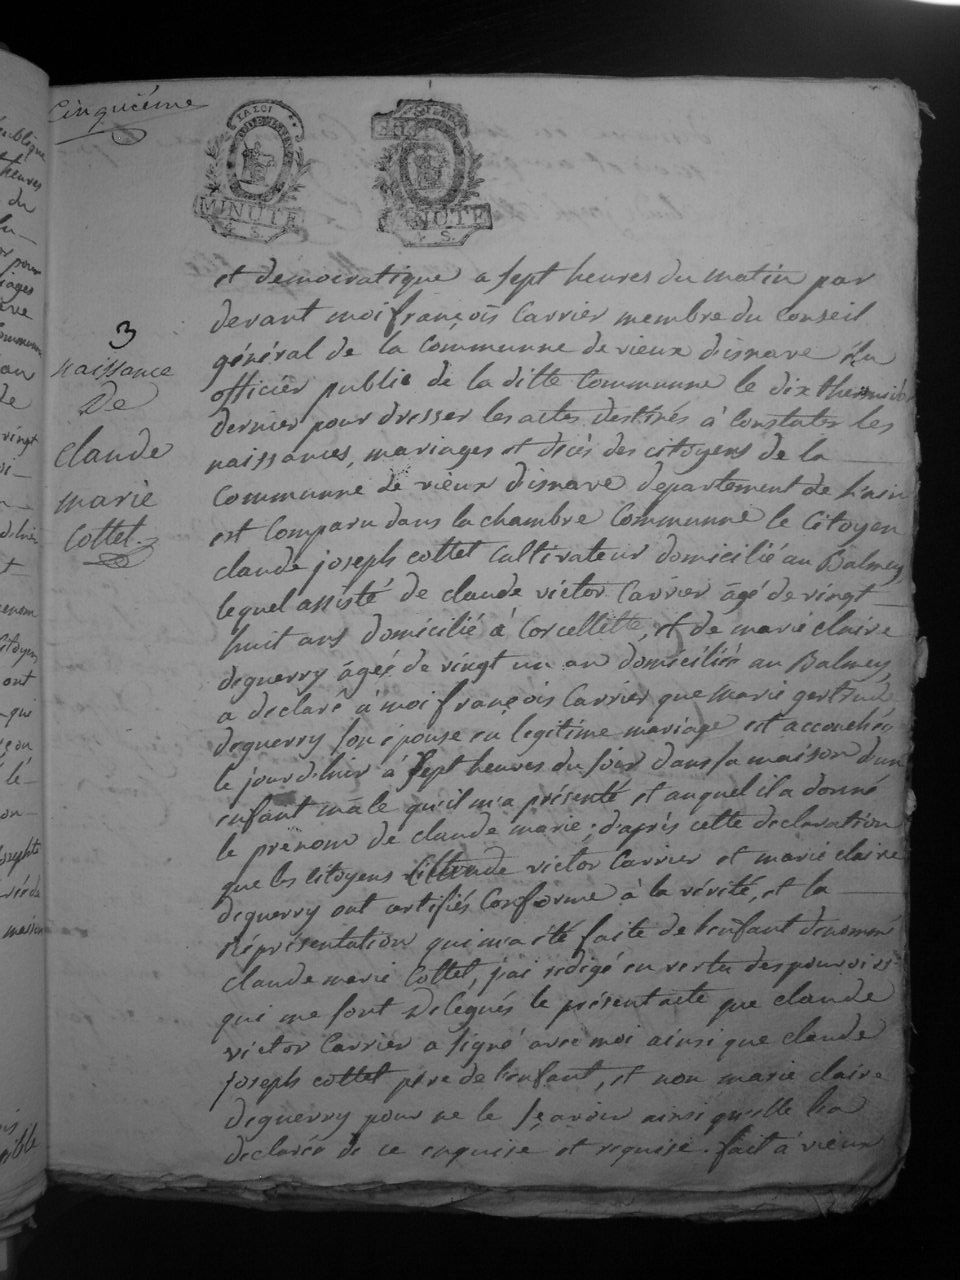 Cinquième
LA LOI
MINUTE
4 S.
MINUTE
4 S.
3
naissance
De
claude
marie
Cottet
et démocratique a sept heures du matin par
devant moi françois Carrier membre du Conseil
général de la Communne de vieux disnave élu
officier public de la ditte Communne le dix thermidor
dernier pour dresser les actes destinés à Constater les
naissances, mariages et décès des citoyens de la
Communne de vieux disnave département de lain
est Comparu dans la chambre Communne le Citoyen
claude joseph cottet Cultivateur domicilié au Balmey
lequel assisté de claude victor Carrier âgé de vingt
huit ans domicilié à Corcellette, et de marie claire
deguerry âgée de vingt un an domiciliés au Balmey
a déclaré à moi françois Carrier que marie gertrude
deguerry son épouse en légitime mariage est accouchée
le jour dhier à sept heures du soir dans sa maison d'un
enfant mâle qu'il m'a présenté et auquel il a donné
le prénom de claude marie; d'après cette déclaration
que les Citoyens Claude victor Carrier et marie claire
deguerry ont certifiés Conforme à la vérité, et la
représentation qui m'a été faite de l'enfant dénommé
claude marie Cottet, j'ai rédigé en vertu des pouvoirs
qui me sont délégués le présent acte que claude
victor Carrier a signé avec moi ainsi que claude
joseph cottet père de l'enfant, et non marie claire
deguerry pour ne le sçavoir ainsi qu'elle l'a
déclarée de ce enquise et requise. fait à vieux